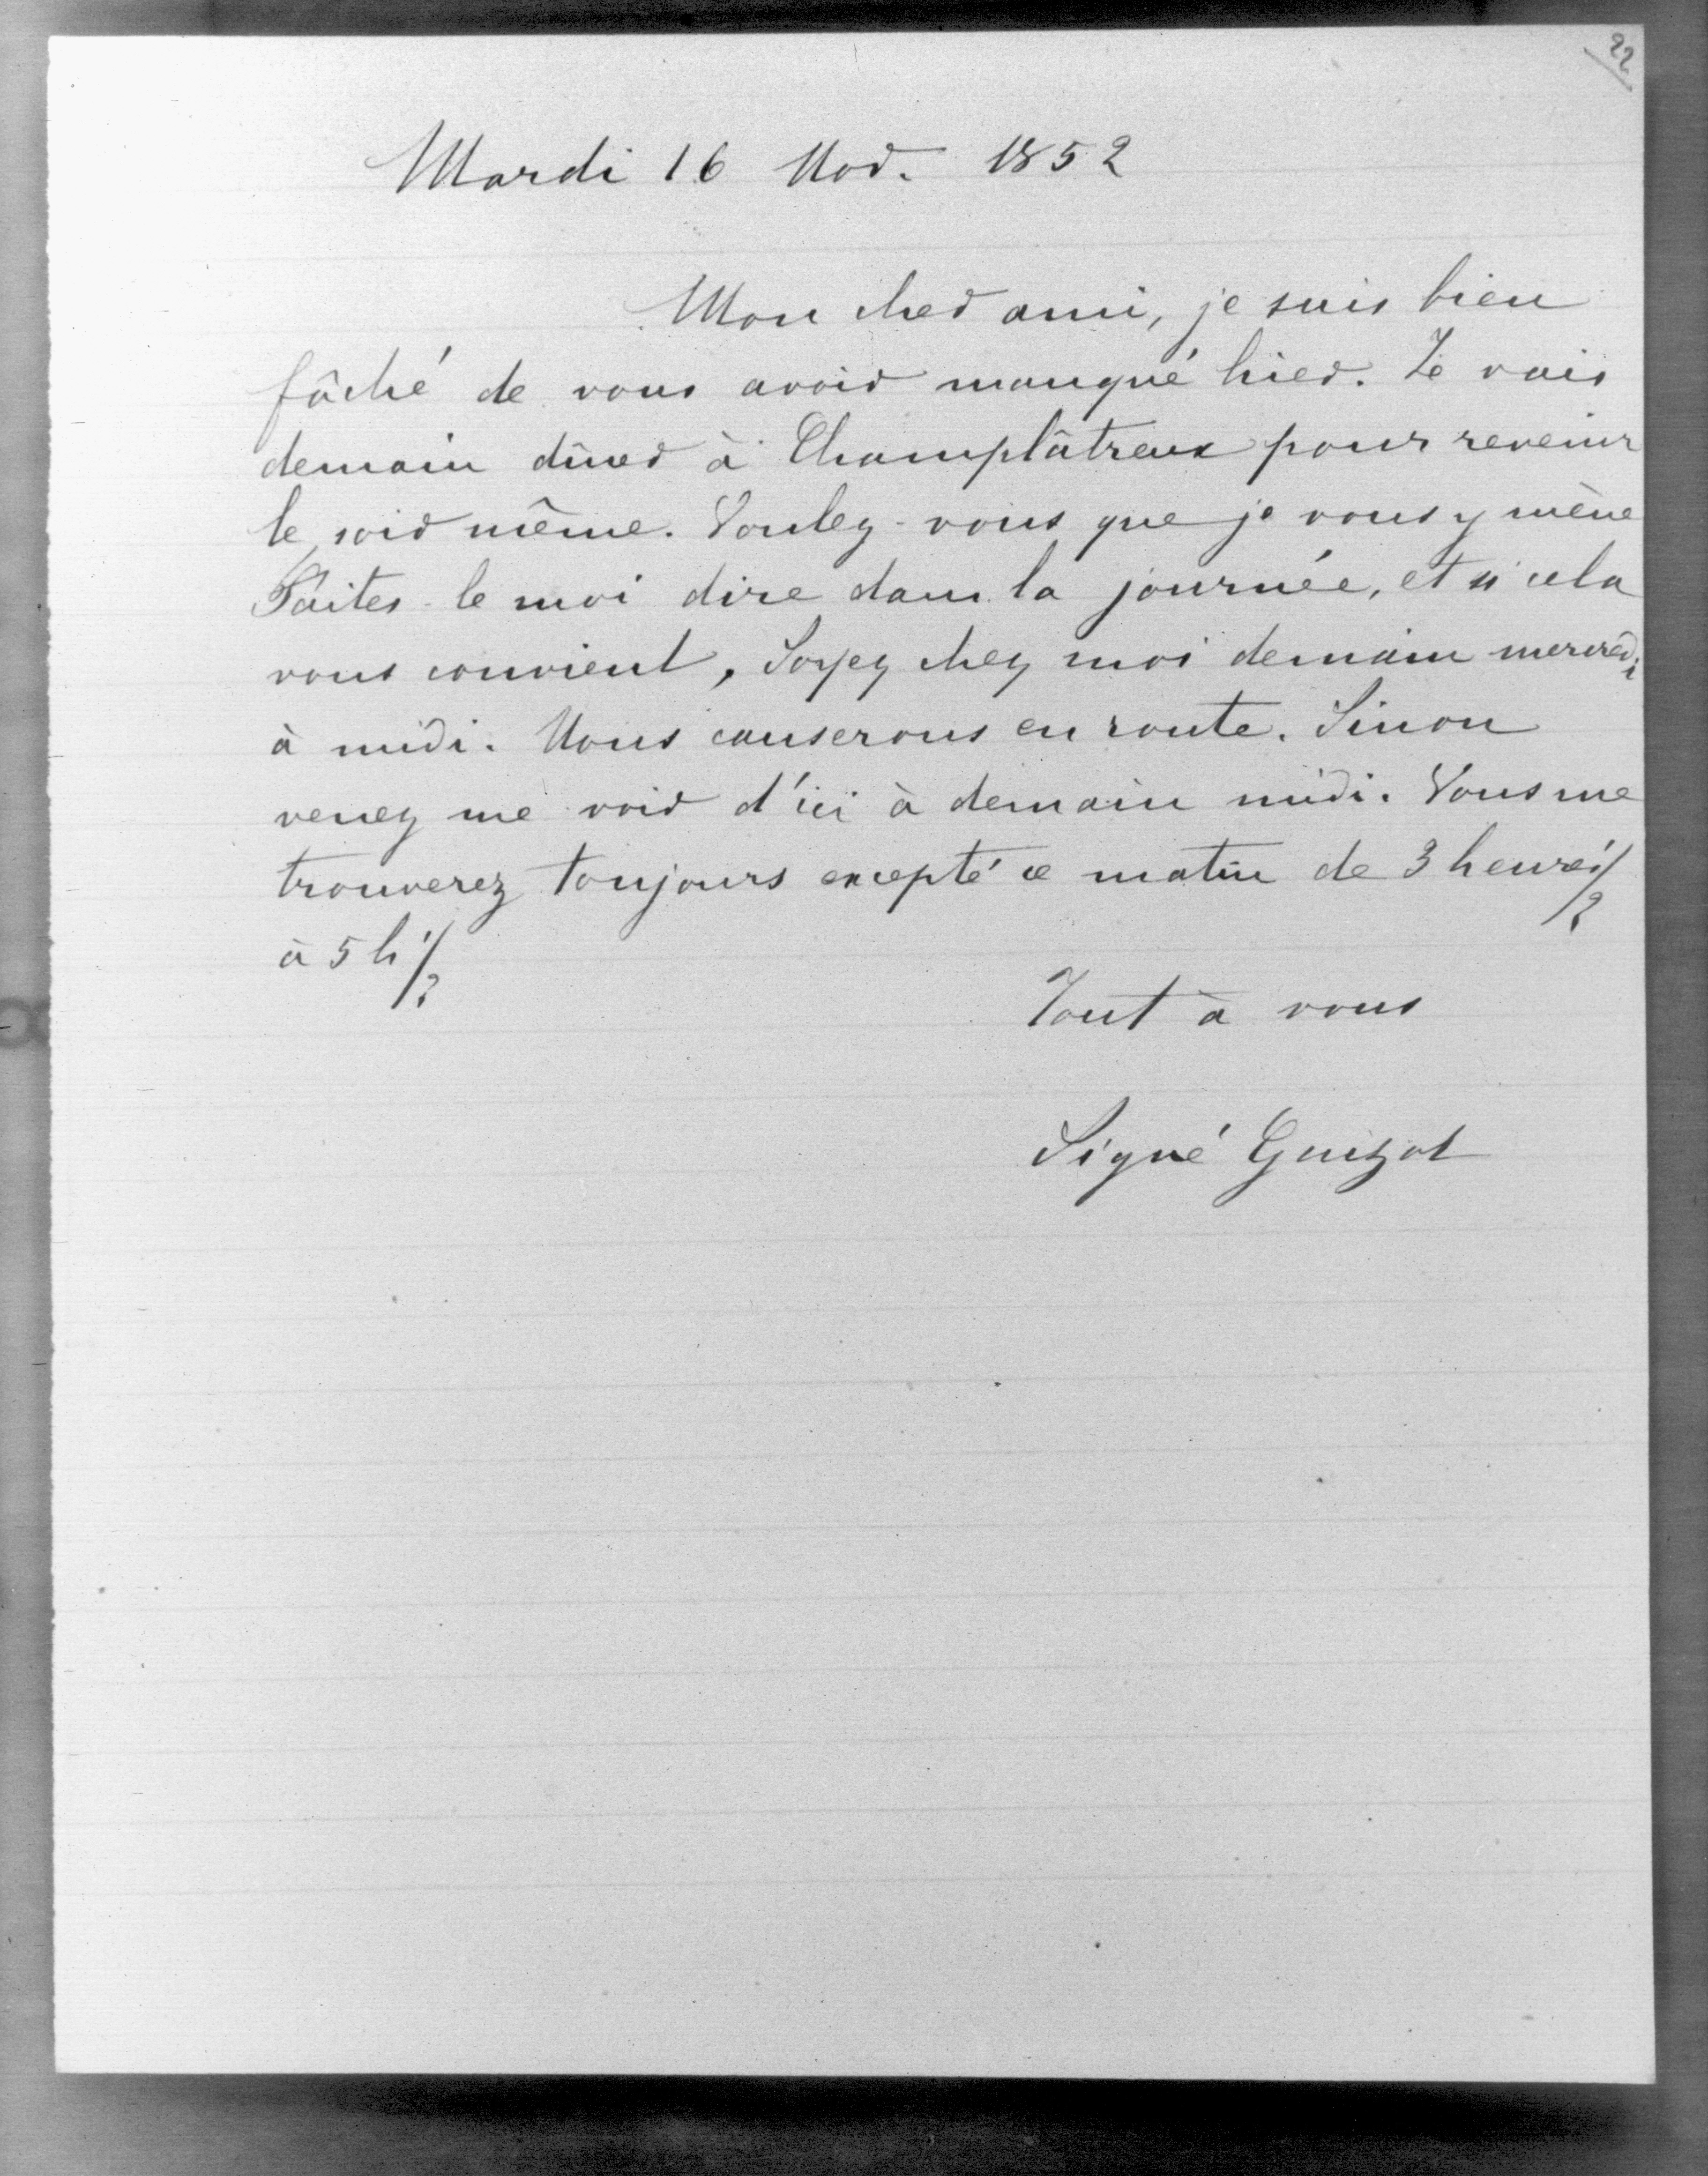 22
Mardi 16 Nov. 1852
Mon cher ami, je suis bien
fâché de vous avoir manqué hier. Je vais
demain dîner à Champlâtreux pour revenir
le soir même. Voulez-vous que je vous y mène
Faites-le moi dire dans la journée, et si cela
vous convient, Soyez chez moi demain mercredi
à midi. Nous causerons en route. Sinon
venez me voir d'ici à demain midi. Vous me
trouverez toujours excepté ce matin de 3 heures 1/2
à 5 h 1/2
Tout à vous
Signé Guizot